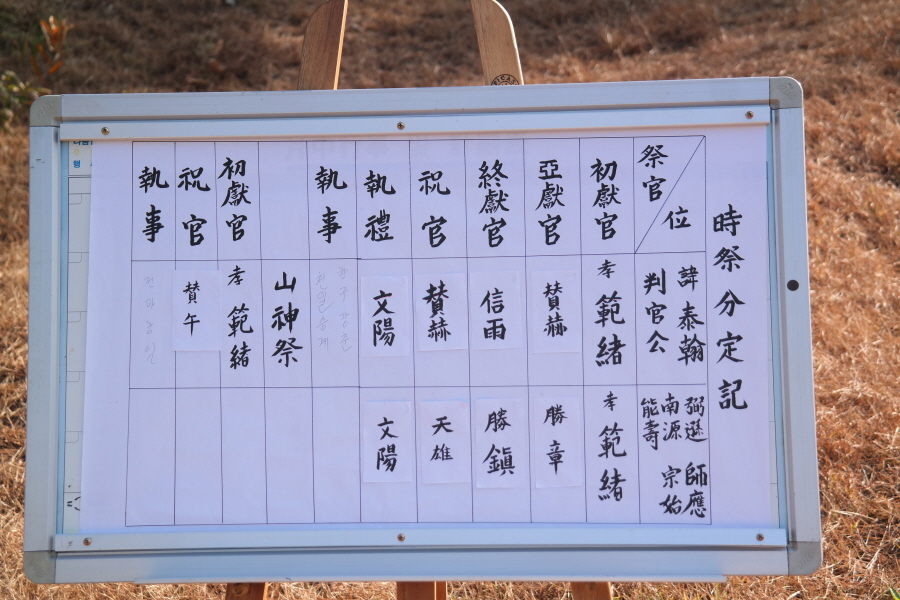 時祭分定記
祭官 位
諱泰翰
判官公
弼遜 師應
南源 宗始
能壽
初獻官
孝 範緖
孝 範緖
亞獻官
賛赫
勝章
終獻官
信雨
勝鎭
祝官
賛赫
天雄
執禮
文陽
文陽
執事
山神祭
初獻官
孝 範緖
祝官
賛午
執事